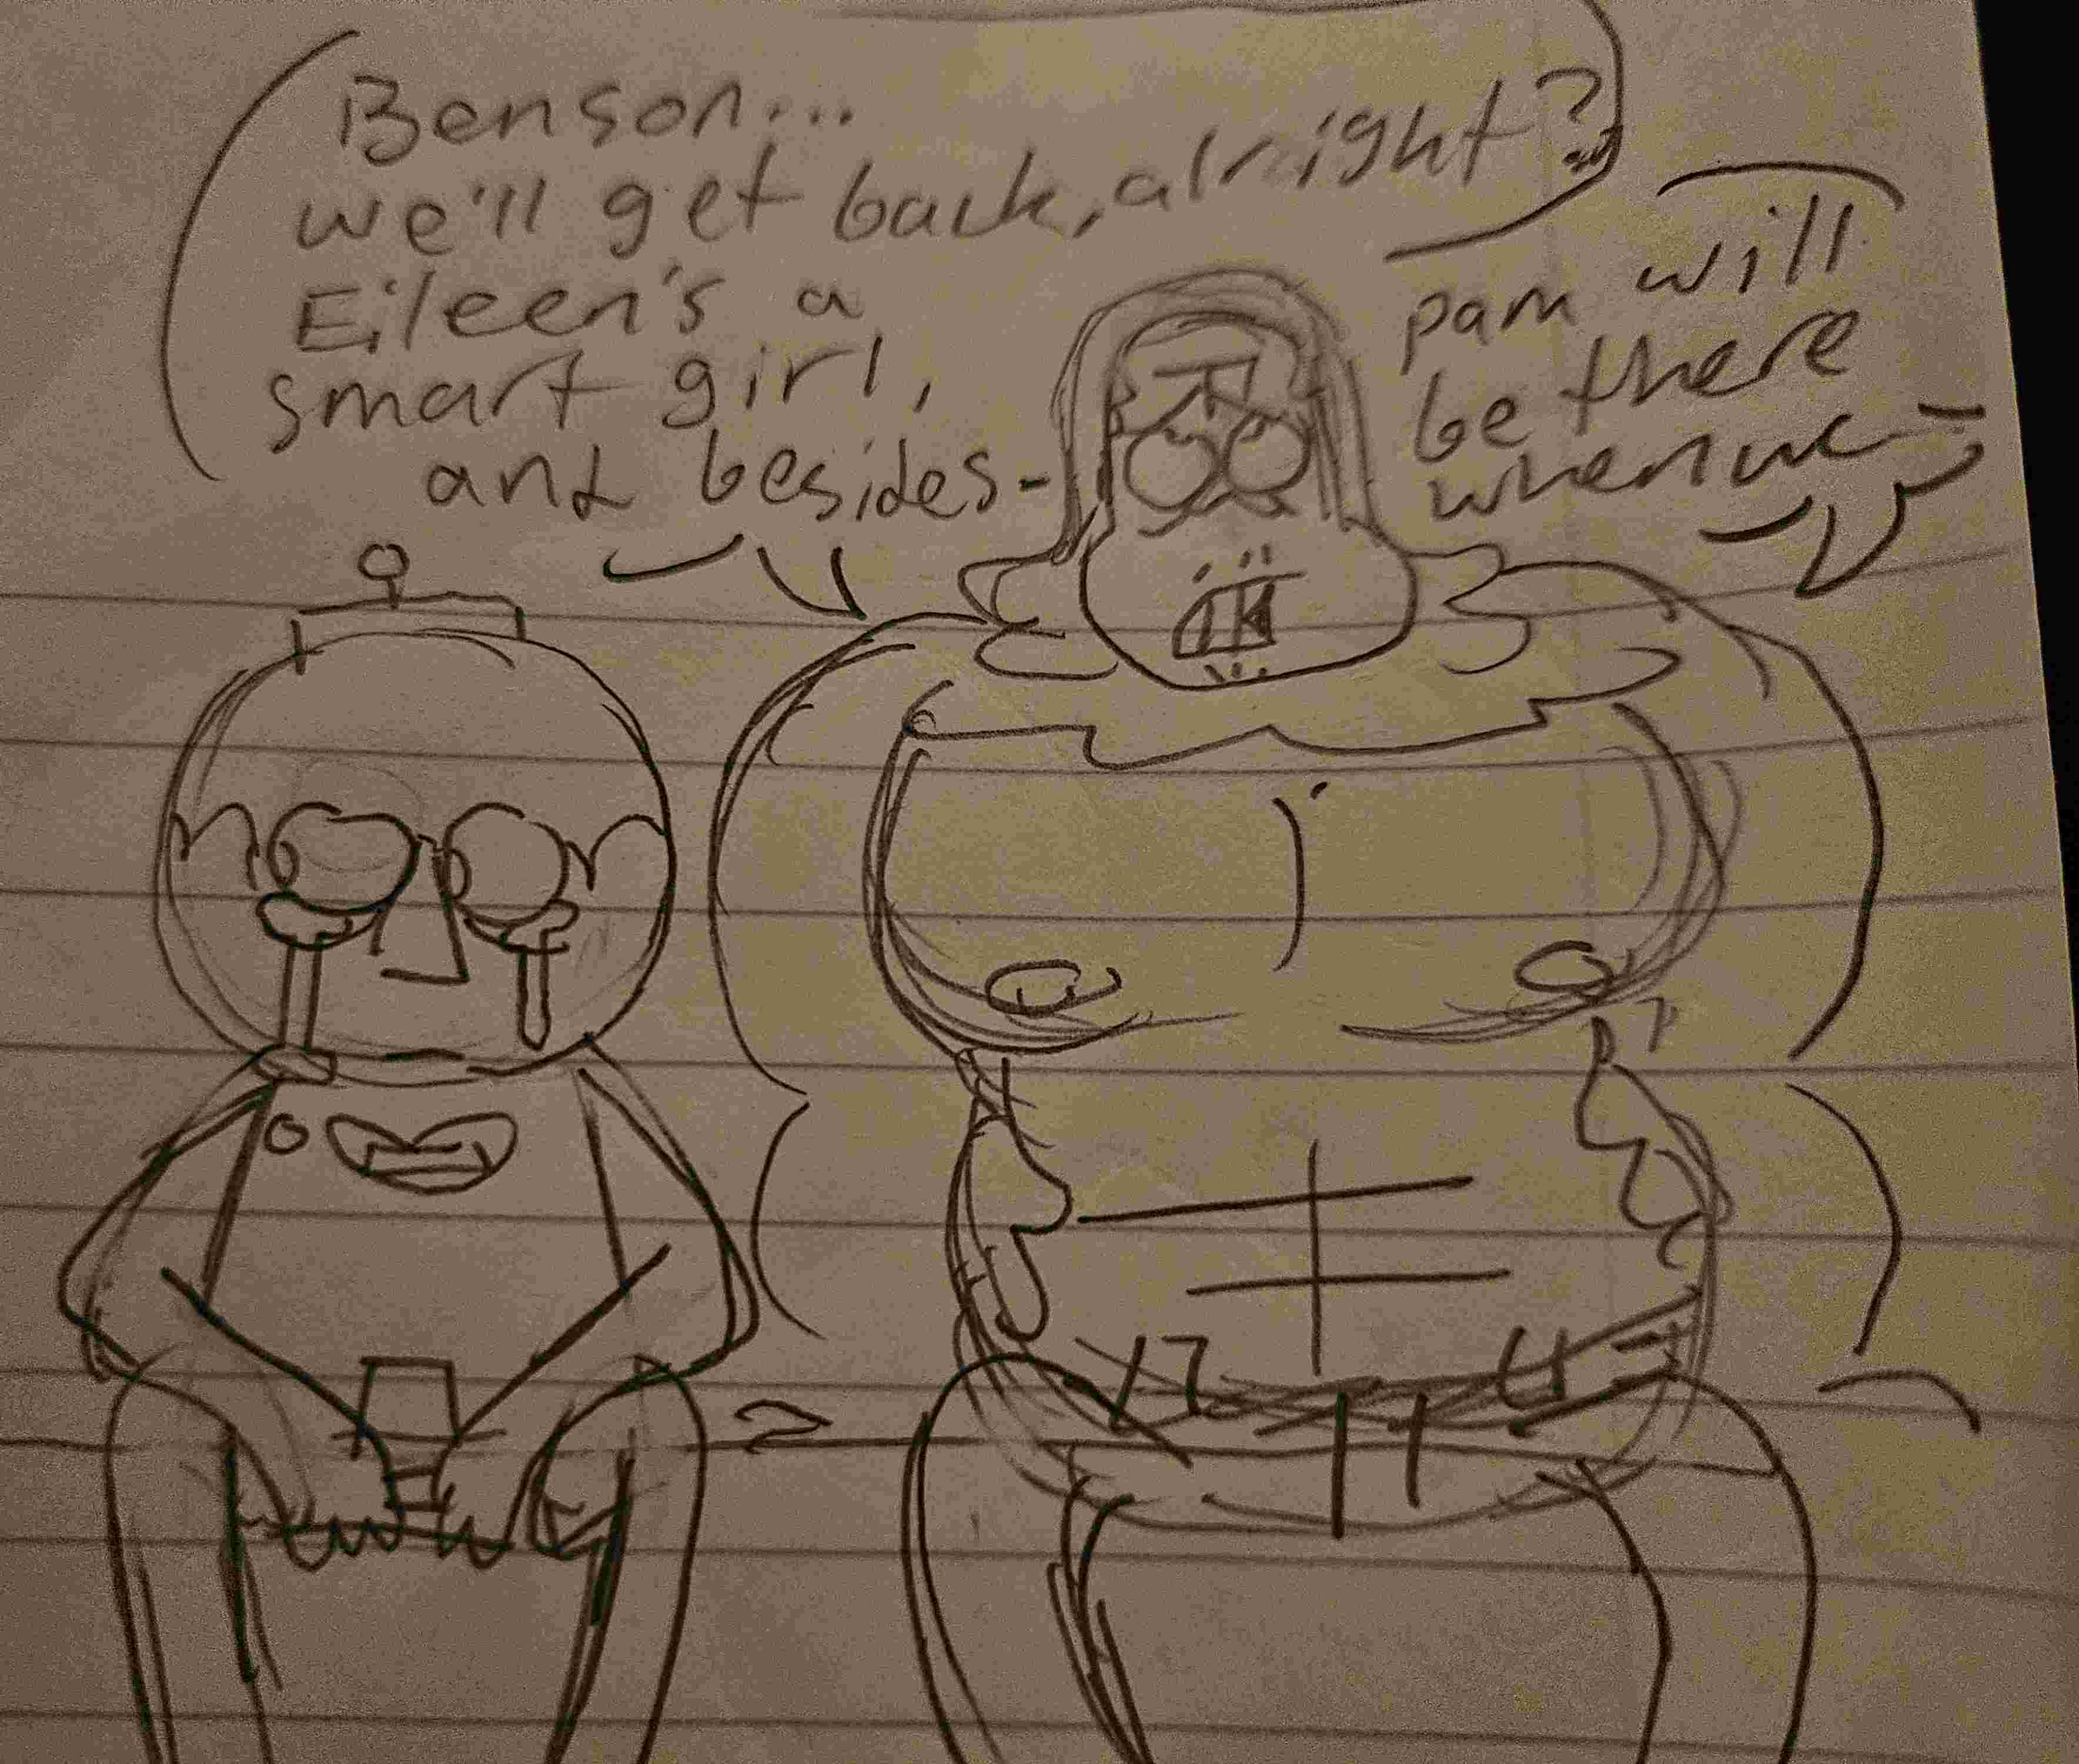 Benson...
we'll get back, alright?
Eileen's a
smart girl,
and besides-
pam will
be there
when we-